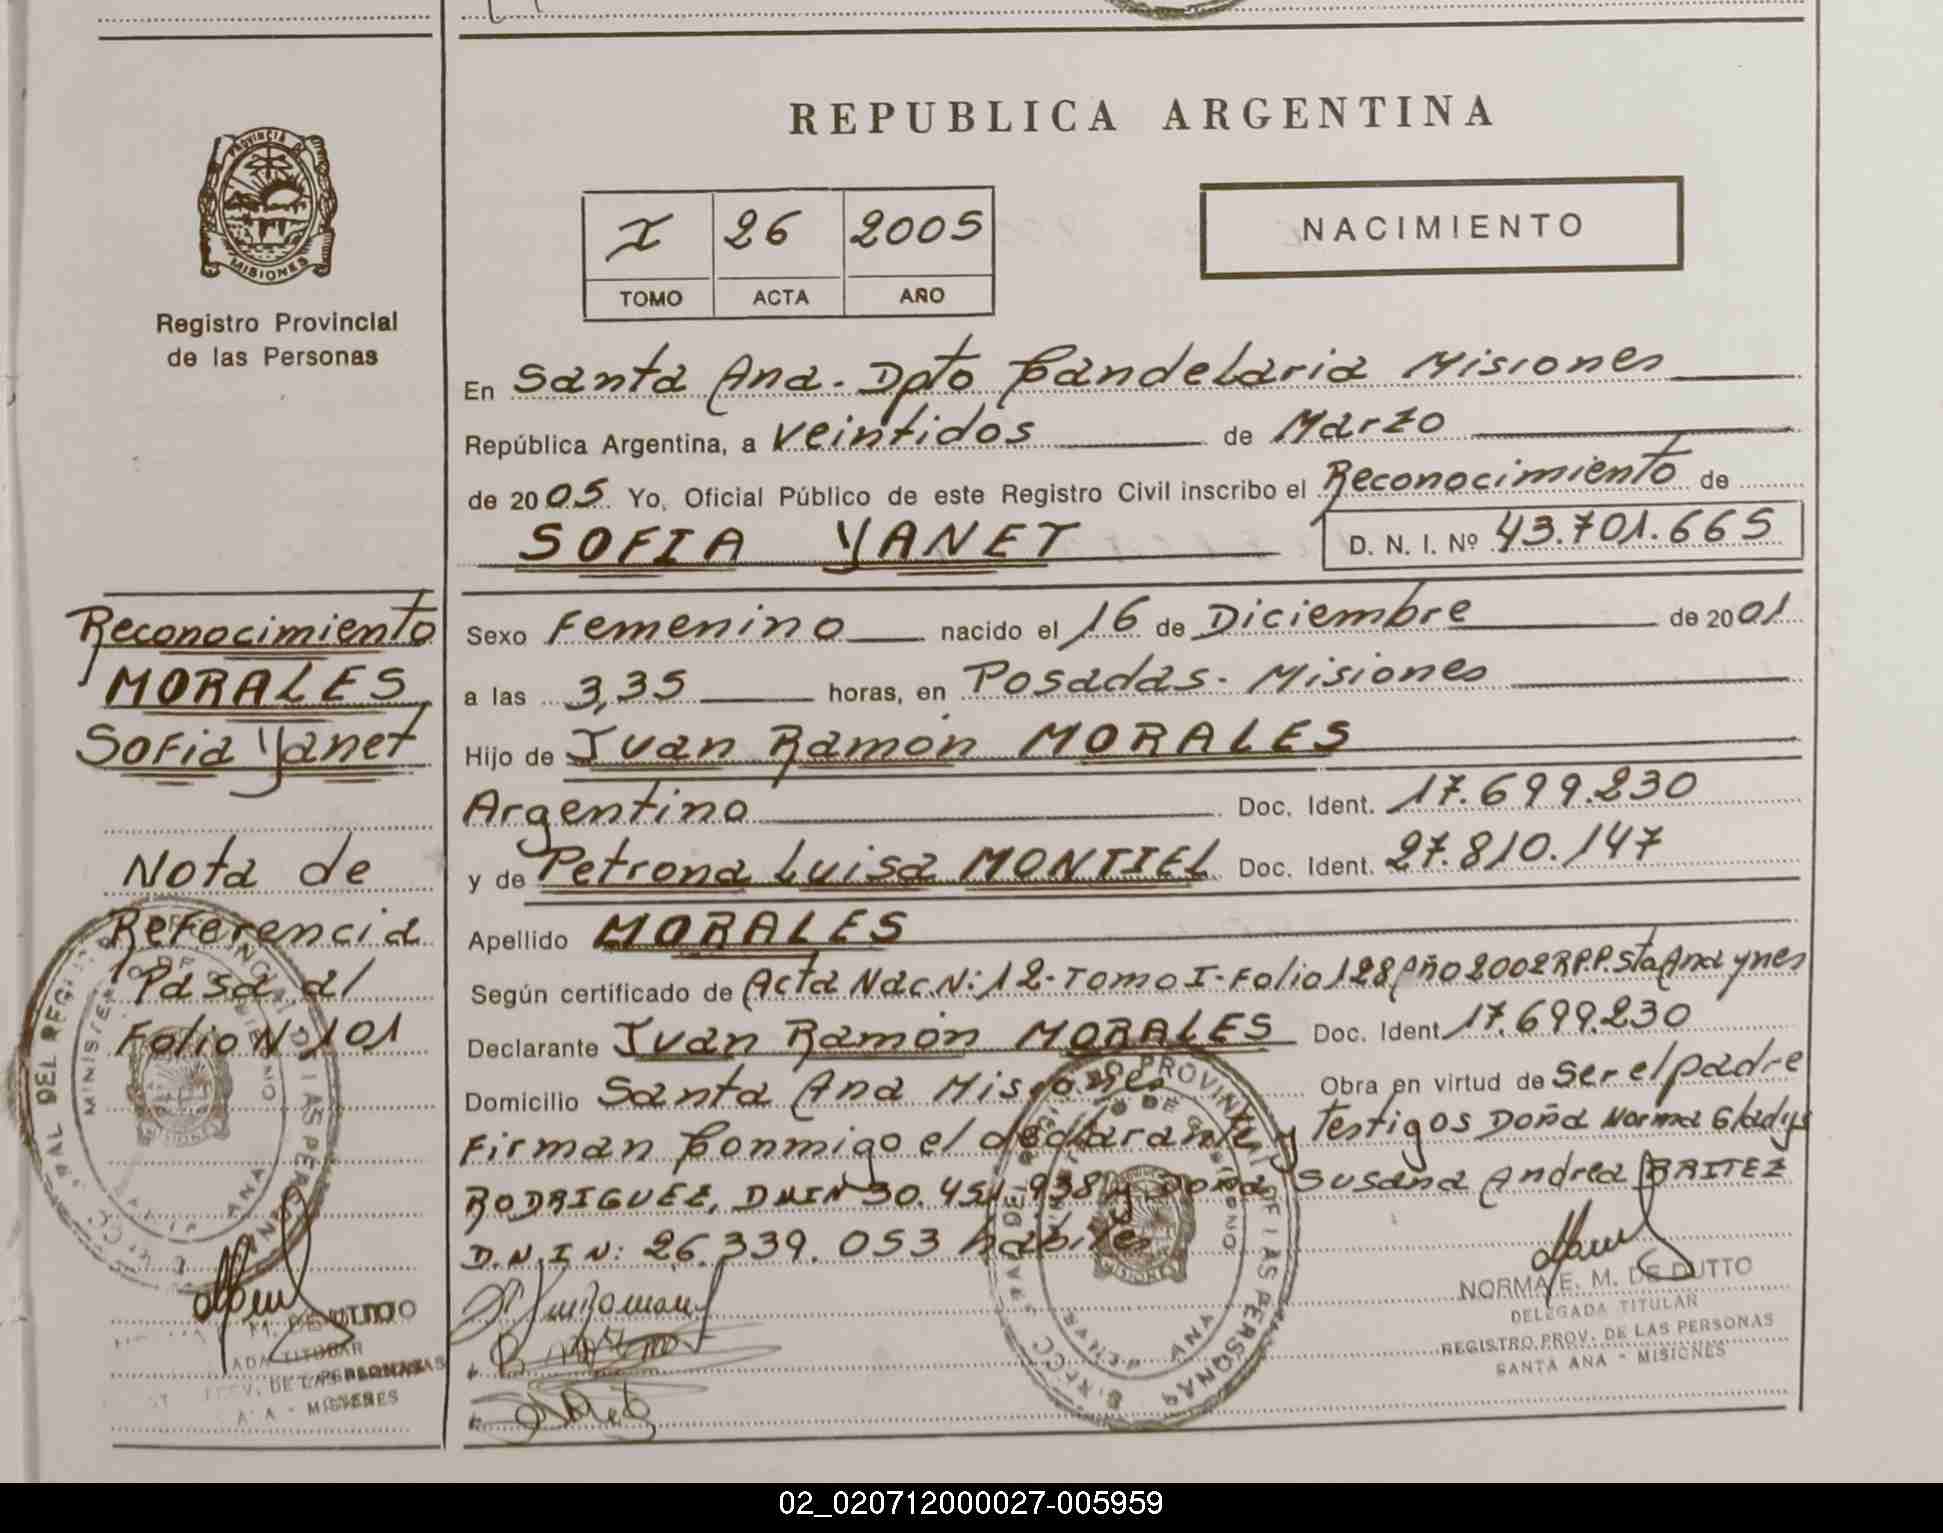 PROVINCIA DE
MISIONES
Registro Provincial
de las Personas
Reconocimiento
MORALES
Sofia Yanet
Nota de
Referencia
Pasa al
Folio Nº 101
REPUBLICA ARGENTINA
I 26 2005
TOMO ACTA AÑO
NACIMIENTO
En Santa Ana. Dpto Candelaria Misiones
República Argentina, a veintidos de Marzo
de 2005 Yo, Oficial Público de este Registro Civil inscribo el Reconocimiento de
SOFIA YANET D. N. I. Nº 43.701.665
Sexo Femenino nacido el 16 de Diciembre de 2001
a las 3,35 horas, en Posadas - Misiones
Hijo de Juan Ramón MORALES
Argentino Doc. Ident. 17.699.230
y de Petrona Luisa MONTIEL Doc. Ident. 27.810.147
Apellido MORALES
Según certificado de Acta Nac. N: 12 - Tomo I - Folio 128 Año 2002 R.P.P. Sta Ana ynes
Declarante Juan Ramón MORALES Doc. Ident. 17.699.230
Domicilio Santa Ana Misiones Obra en virtud de ser el padre
Firman Conmigo el declarante y Testigos Doña Norma Gladys
RODRIGUEZ, DNI Nº 30.451.938 y Doña Susana Andrea BRITEZ
D.N.I N: 26.339.053 habiles
NORMA E. M. DE DUTTO
DELEGADA TITULAR
REGISTRO PROV. DE LAS PERSONAS
SANTA ANA - MISIONES
02_020712000027-005959